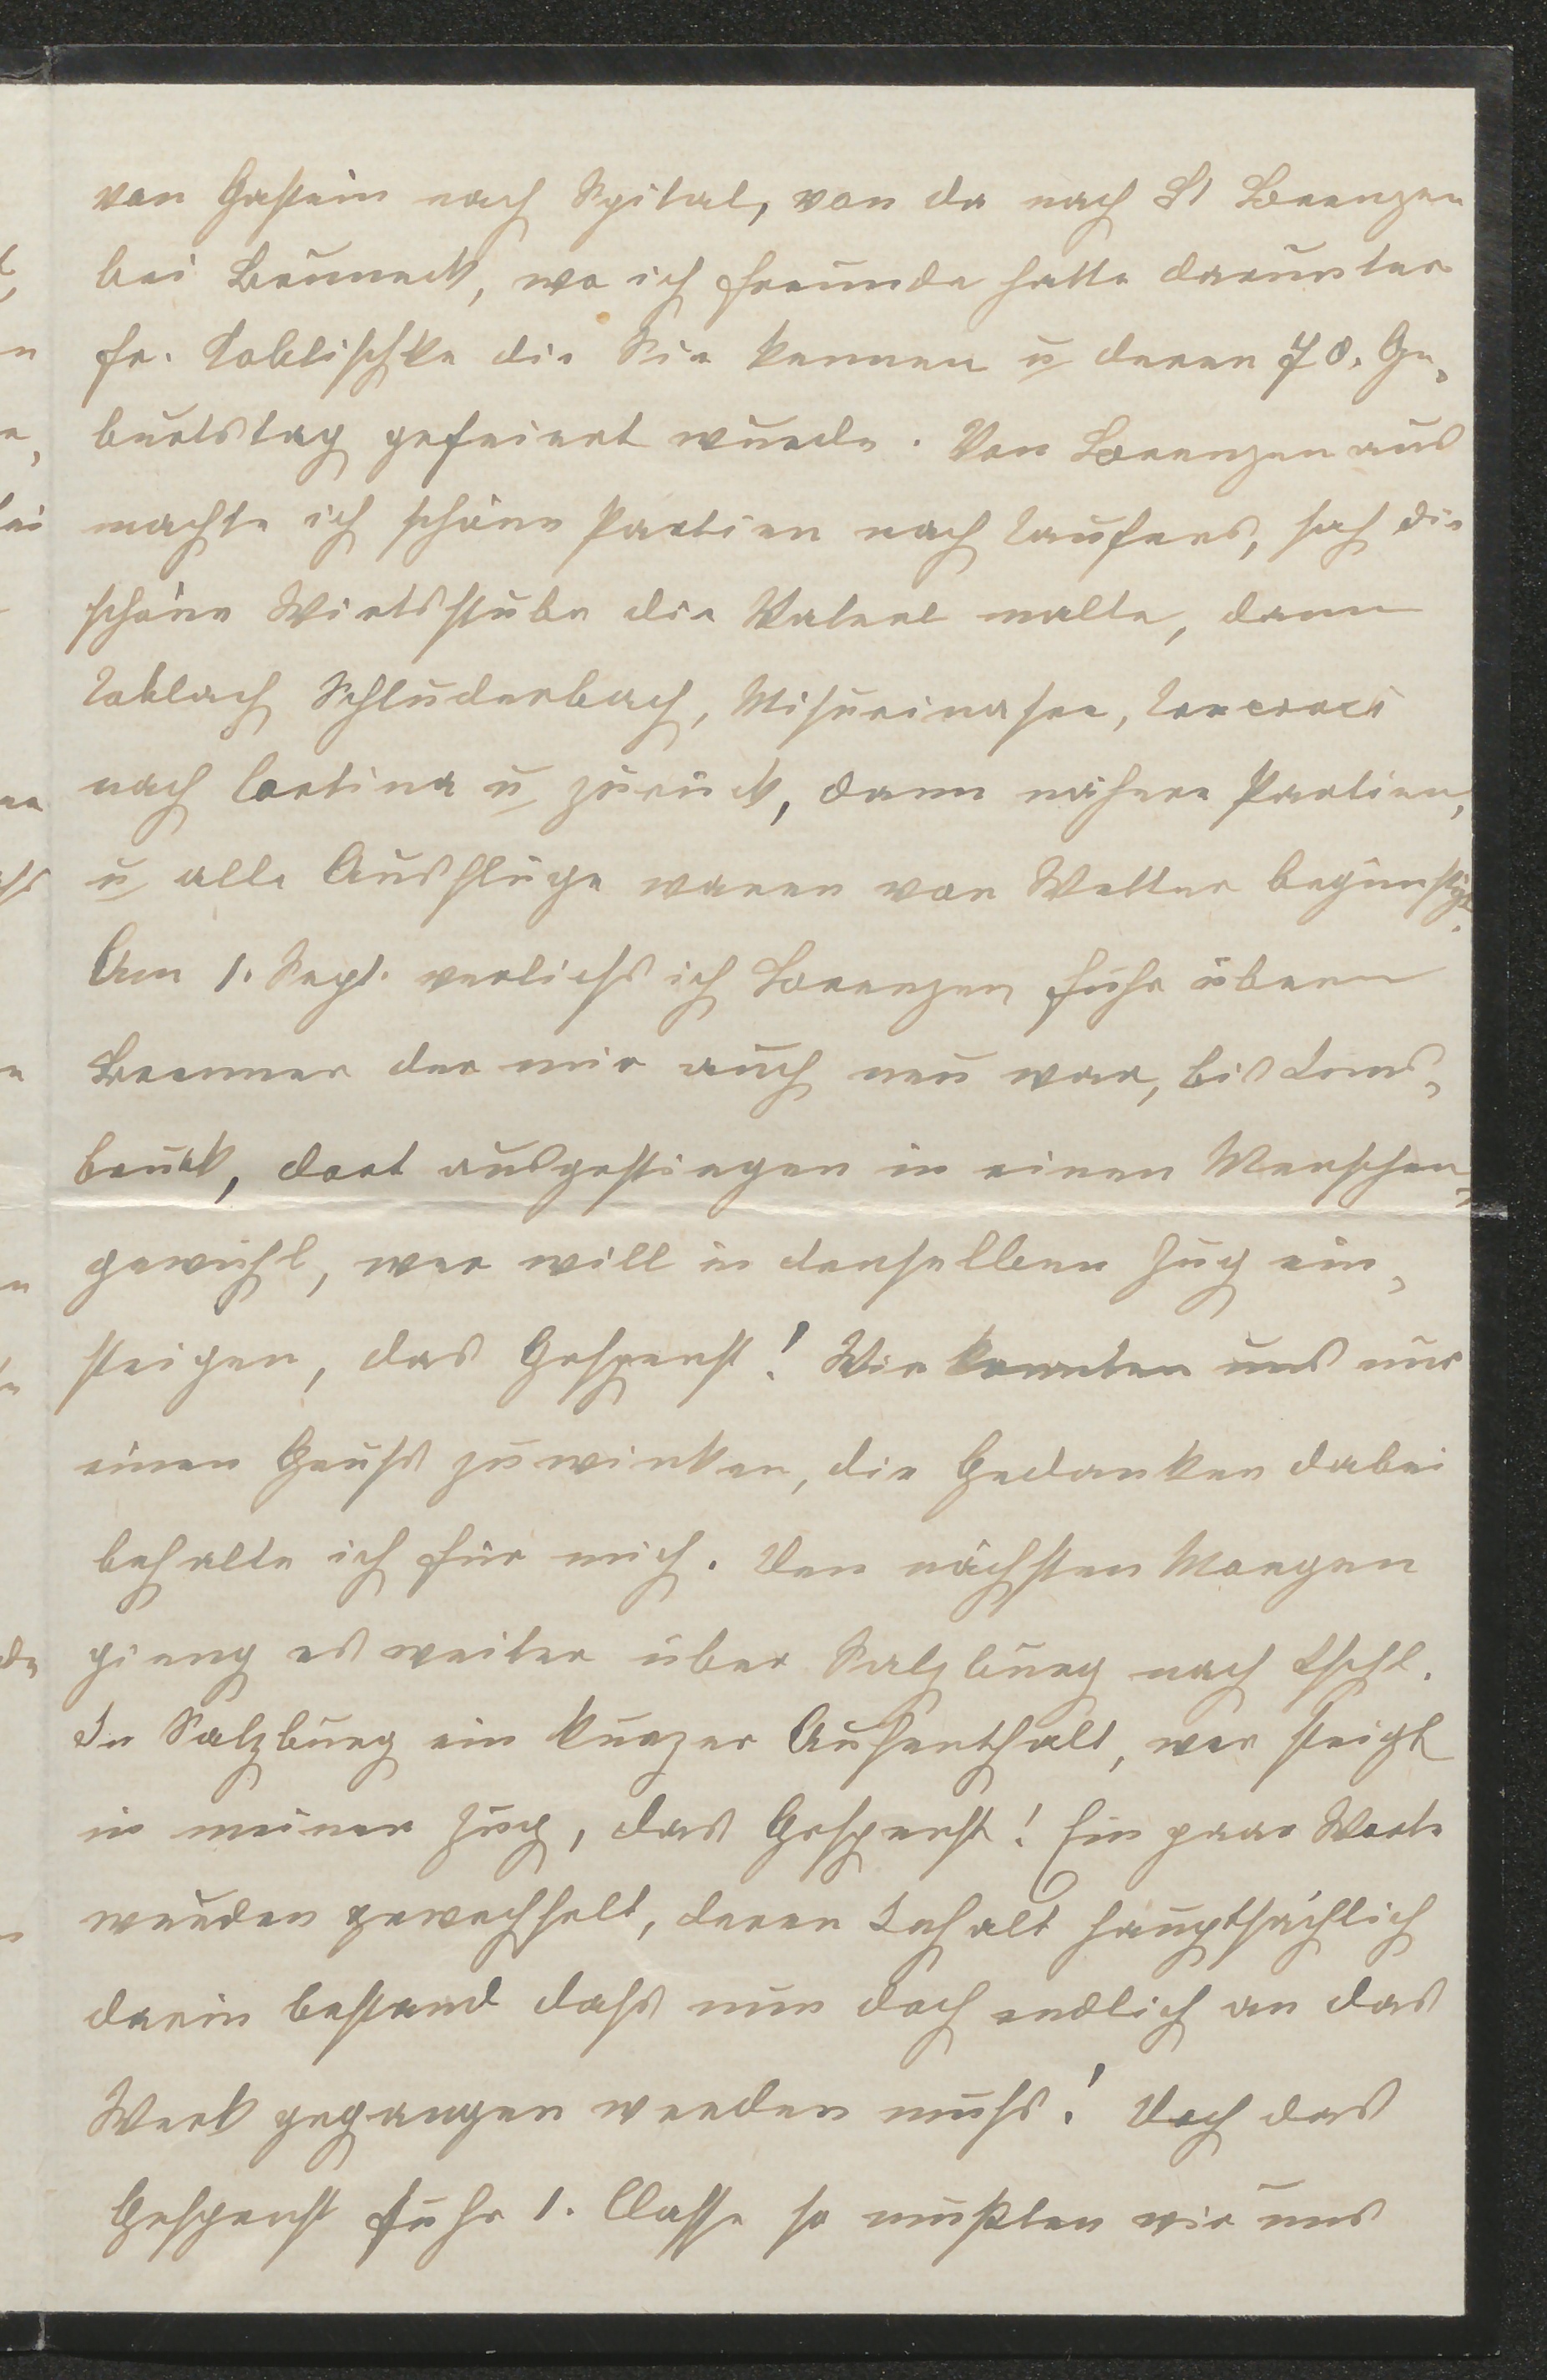 von Gastein nach Spital, von da nach St Lorenzen
bei Bruneck, wo ich Freunde hatte darunter
Fr. Koblischke die Sie kennen u deren 70. Ge-
burtstag gefeiert wurde. Von Lorenzen aus
machte ich schöne Partien nach Taufers, sah die
schöne Wirtsstube die malte, dann
Toblach Schluderbach, Misurinasee, Trecroci
nach Cortina u zurück, dann nähere Partien,
u alle Ausflüge waren von Wetter begünstigt.
Am 1. Sept. verliess ich Lorenzen fuhr übern
Brenner der mir auch neu war, bis Inns-
bruck, dort ausgestiegen in einen Menschen-
gewühl, wer will in denselben Zug ein-
steigen, das Gespenst! Wir konnten uns nur
einen Gruss zuwinken, die Gedanken dabei
behalte ich für mich. Den nächsten Morgen
gieng es weiter über Salzburg nach Ischl.
In Salzburg ein kurzer Aufenthalt, wer steigt
in meinen Zug, das Gespenst! Ein paar Worte
wurden gewechselt, deren Inhalt hauptsächlich
darin bestand dass nun doch endlich an das
Werk gegangen werden muss! Doch das
Gespenst fuhr 1. Classe so mußten wir uns